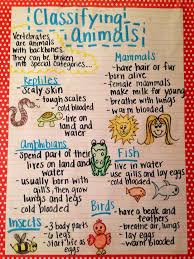 Classifying
Animals
Vertebrates
are animals
with backbones.
they can be broken
into special categories...
Reptiles
- Scaly skin
- tough scales
- cold blooded
- live on
land and
water
Mammals
- have hair or fur
- born alive
- female mammals
make milk for young
- breathe with lungs
- warm blooded
Amphibians
- Spend part of their
lives on land and
water
- usually born with
gills, then grow
lungs and legs
- cold blooded
Fish
- live in water
- use gills and lay eggs
- cold blooded
Birds
- have a beak and
feathers
- breathe air, lungs
- lay eggs
- warm blooded
Insects
- 3 body parts
- 6 legs
- Start life as
eggs